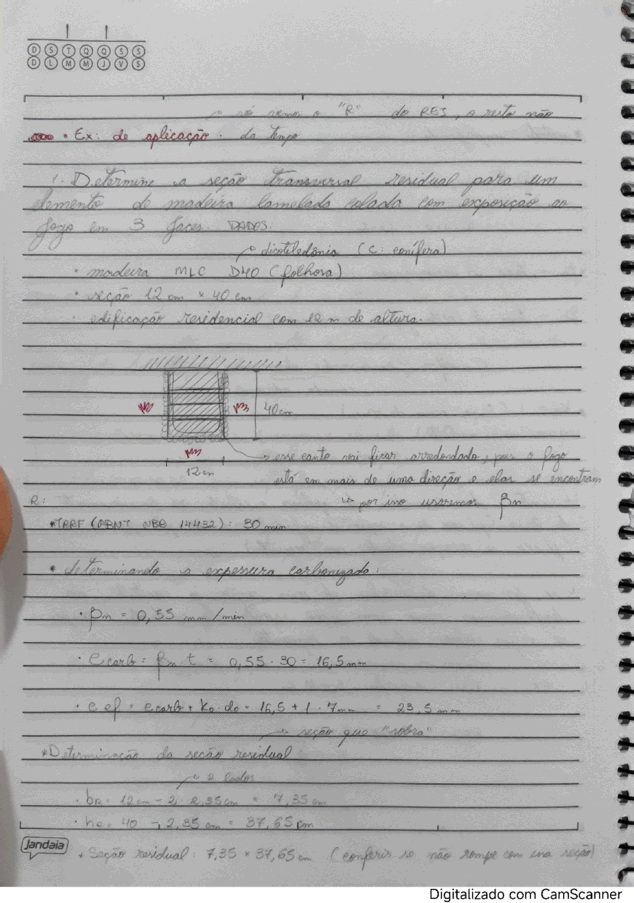 D S T Q Q S S
D L M M J V S
só vemos o "R" do REI, o resto não
• Ex: de aplicação: da tempo
1. Determine a seção transversal residual para um
elemento de madeira lamelada colada com exposição ao
fogo em 3 faces. DADOS:
dicotiledônia (C: conífera)
• madeira MLC D40 (folhosa)
• seção 12 cm × 40 cm
• edificação residencial com 12 m de altura.
40cm
12cm
esse canto vai ficar arredondado, pois o fogo
está em mais de uma direção e elas se encontram
↳ por isso usamos βn
R:
*TRRF (ABNT NBR 14432): 30 min
* determinando a espessura carbonizada:
• βn = 0,55 mm/min
• e carb = βn t = 0,55 · 30 = 16,5mm
• e ef = e carb + k0 · d0 = 16,5 + 1 · 7mm = 23,5 mm
seção que "sobra"
*Determinação da seção residual:
2 lados
• bR = 12cm - 2 · 2,35cm = 7,35 cm
• hR = 40 - 2,35 cm = 37,65 cm
Jandaia
* Seção residual: 7,35 × 37,65 cm (conferir se não rompe com essa seção)
Digitalizado com CamScanner